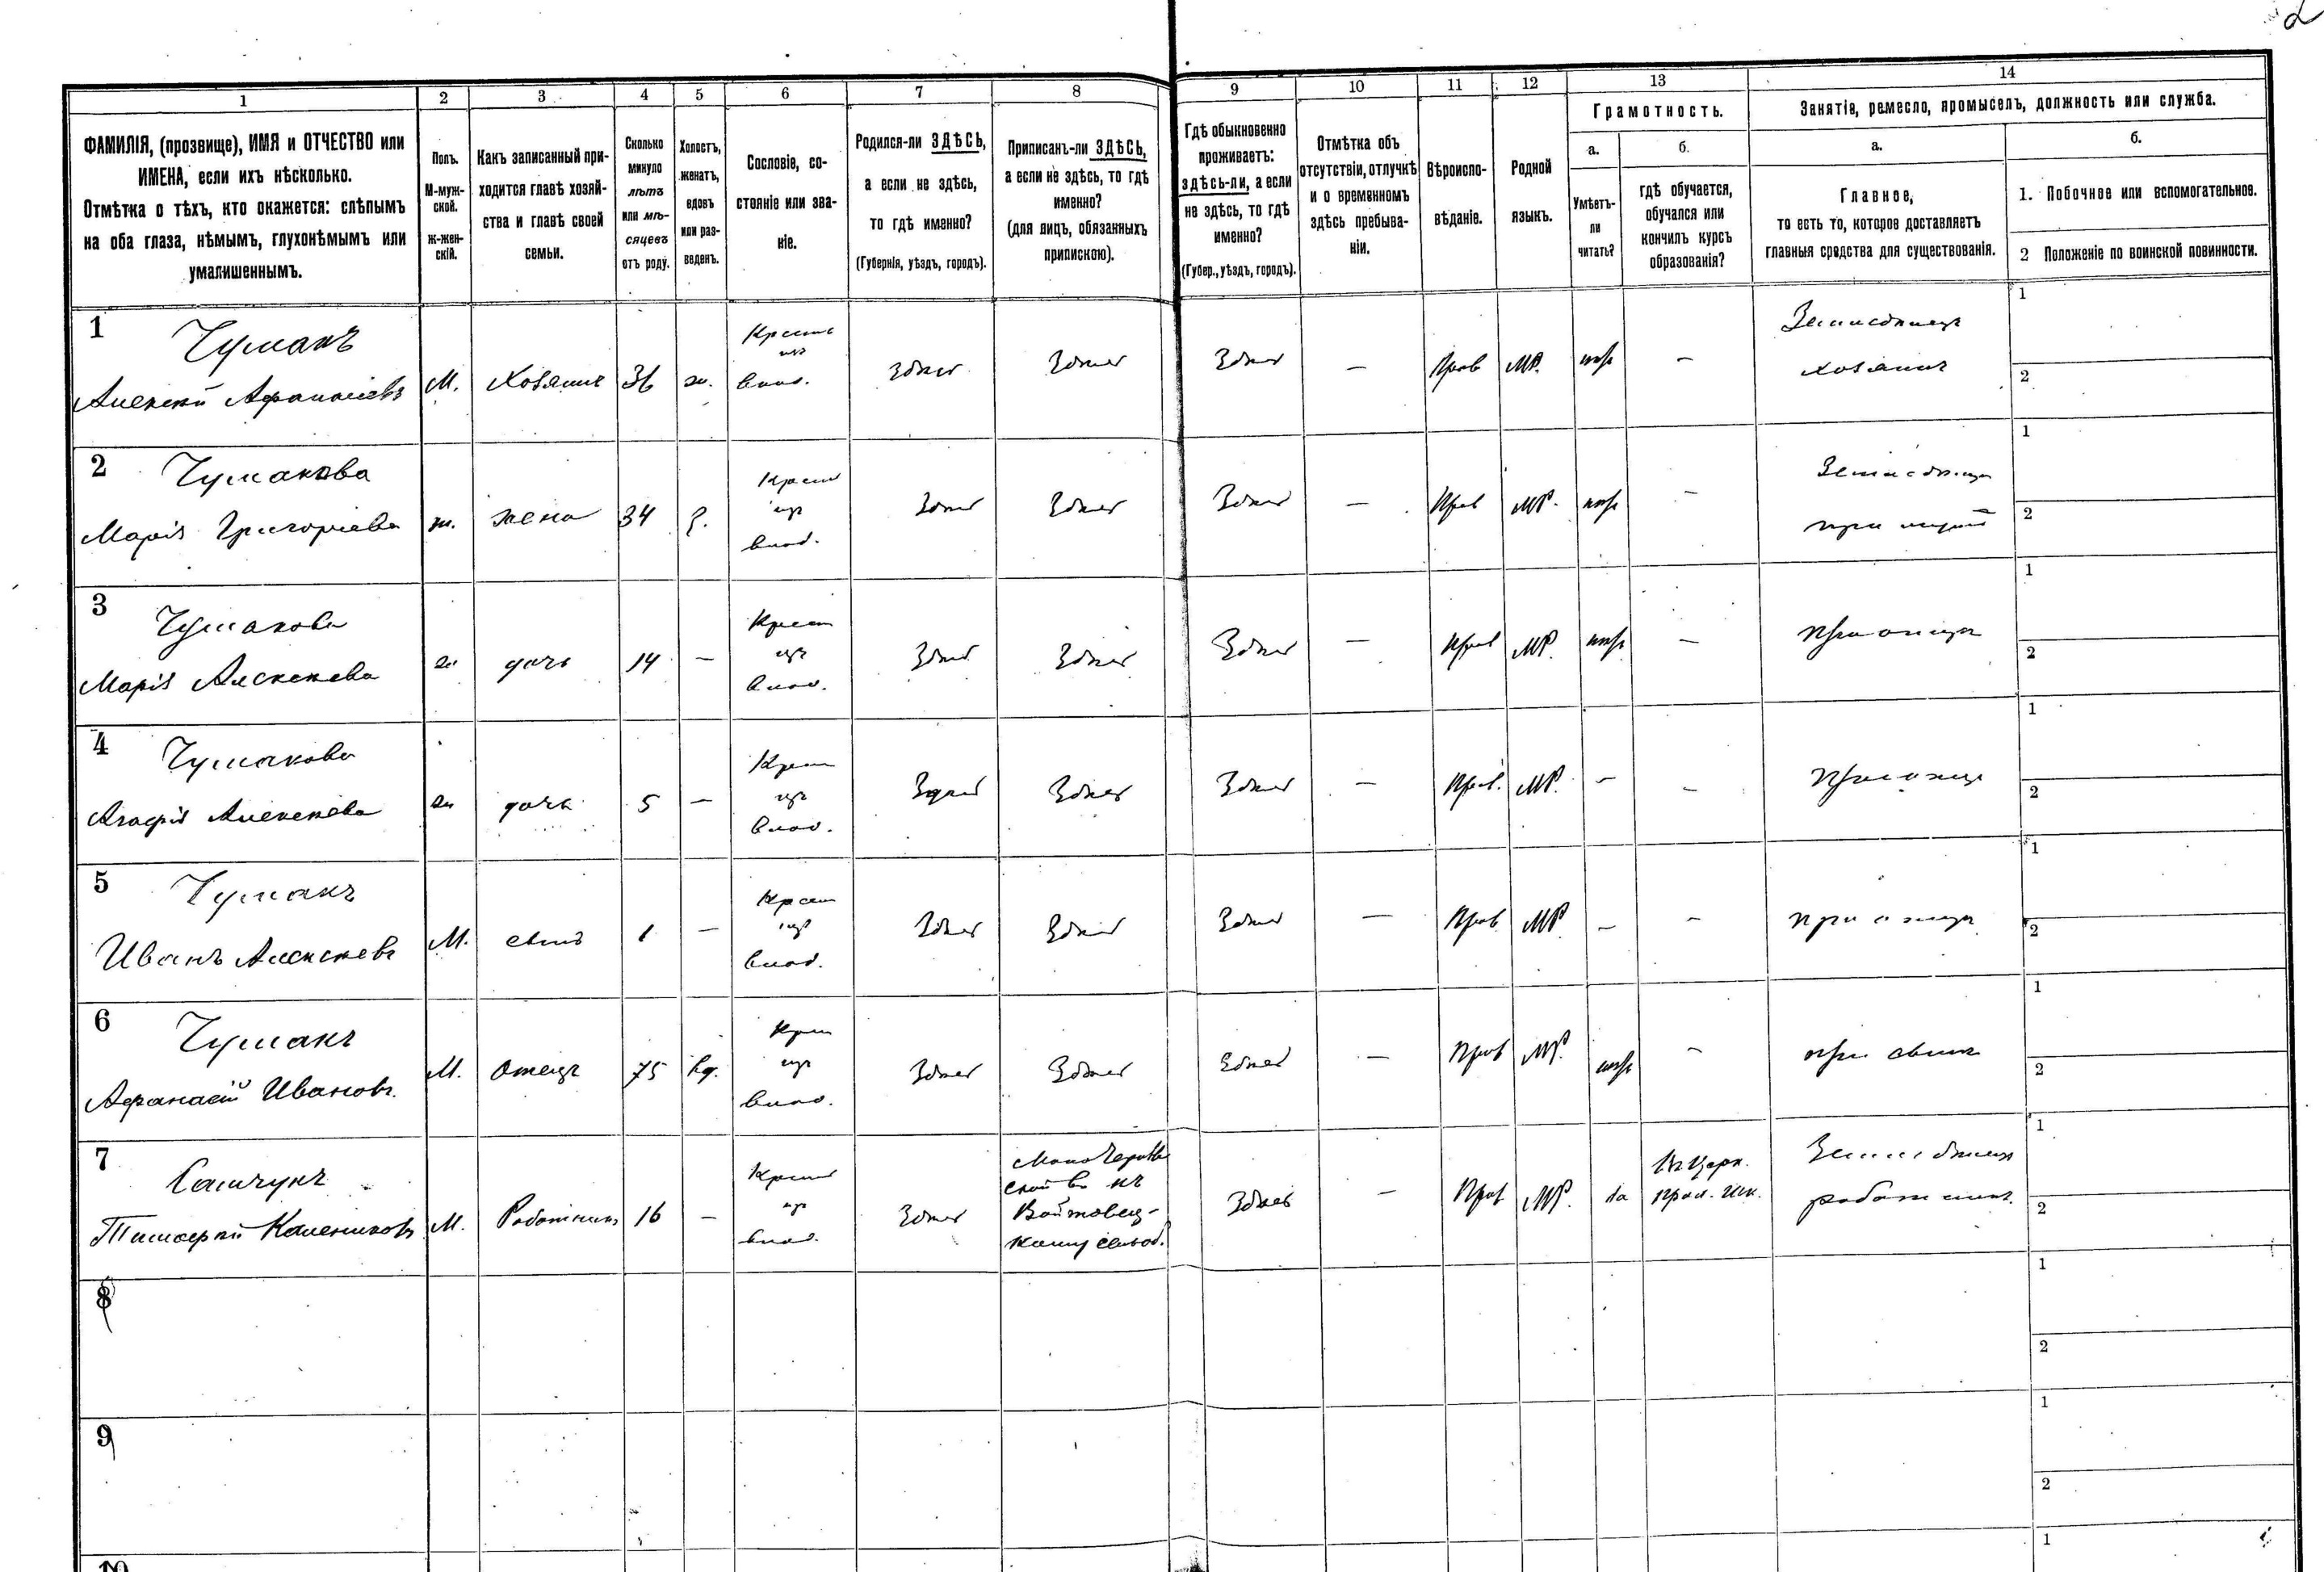 2
1
2
3
4
5
6
7
8
9
10
11
12
13
14
ФАМИЛІЯ, (прозвище), ИМЯ и ОТЧЕСТВО или
ИМЕНА, если ихъ нѣсколько.
Отмѣтка о тѣхъ, кто окажется: слѣпымъ
на оба глаза, нѣмымъ, глухонѣмымъ или
умалишеннымъ.
Полъ.
М-муж-
ской.
ж-жен-
скій.
Какъ записанный при-
ходится главѣ хозяй-
ства и главѣ своей
семьи.
Сколько
минуло
лѣтъ
или мѣ-
сяцевъ
отъ роду.
Холостъ,
женатъ,
вдовъ
или раз-
веденъ.
Сословіе, со-
стояніе или зва-
ніе.
Родился-ли ЗДѢСЬ,
а если не здѣсь,
то гдѣ именно?
(Губернія, уѣздъ, городъ).
Приписанъ-ли ЗДѢСЬ,
а если не здѣсь, то гдѣ
именно?
(для лицъ, обязанныхъ
припискою).
Гдѣ обыкновенно
проживаетъ:
здѣсь-ли, а если
не здѣсь, то гдѣ
именно?
(Губер., уѣздъ, городъ).
Отмѣтка объ
отсутствіи, отлучкѣ
и о временномъ
здѣсь пребыва-
ніи.
Вѣроиспо-
вѣданіе.
Родной
языкъ.
Грамотность.
а.
Умѣетъ-
ли
читать?
б.
гдѣ обучается,
обучался или
кончилъ курсъ
образованія?
Занятіе, ремесло, промыселъ, должность или служба.
а.
Главное,
то есть то, которое доставляетъ
главныя средства для существованія.
б.
1. Побочное или вспомогательное.
2 Положеніе по воинской повинности.
1
Чумакъ
Алексѣй Афанасіевъ
М.
Хозяинъ
36
ж.
Крестьян
изъ
влад.
Здѣсь
Здѣсь
Здѣсь
—
Прав
МР.
нѣтъ
—
Земледѣлецъ
хозяинъ
1
2
2
Чумакова
Марія Григоріева
ж.
жена
34
З.
Крест
изъ
влад.
Здѣсь
Здѣсь
Здѣсь
—
Прав
МР.
нѣтъ
—
при мужѣ
1
2
3
Чумакова
Марія Алексѣева
ж
дочь
14
—
Крест
изъ
влад.
Здѣсь
Здѣсь
Здѣсь
—
Прав
МР.
нѣтъ
—
при отцѣ
1
2
4
Чумакова
Агафія Алексѣева
ж
дочь
5
—
Крест
изъ
влад.
Здѣсь
Здѣсь
Здѣсь
—
Прав.
МР.
—
—
при отцѣ
1
2
5
Чумакъ
Иванъ Алексѣевъ
М.
сынъ
1
—
Крест
изъ
влад.
Здѣсь
Здѣсь
Здѣсь
—
Прав
МР
—
—
при отцѣ
1
2
6
Чумакъ
Афанасій Ивановъ.
М.
Отецъ
75
вд.
Крест
изъ
влад.
Здѣсь
Здѣсь
Здѣсь
—
Прав
МР.
нѣтъ
—
при сынѣ
1
2
7
Самчукъ
Тимофей Калениковъ
М.
Работникъ
16
—
Крест
изъ
влад.
Здѣсь
Войтовец-
кому
Здѣсь
—
Прав
МР.
да
Въ Церк.
прих. шк.
работникъ.
1
2
8
1
2
9
1
2
10
1